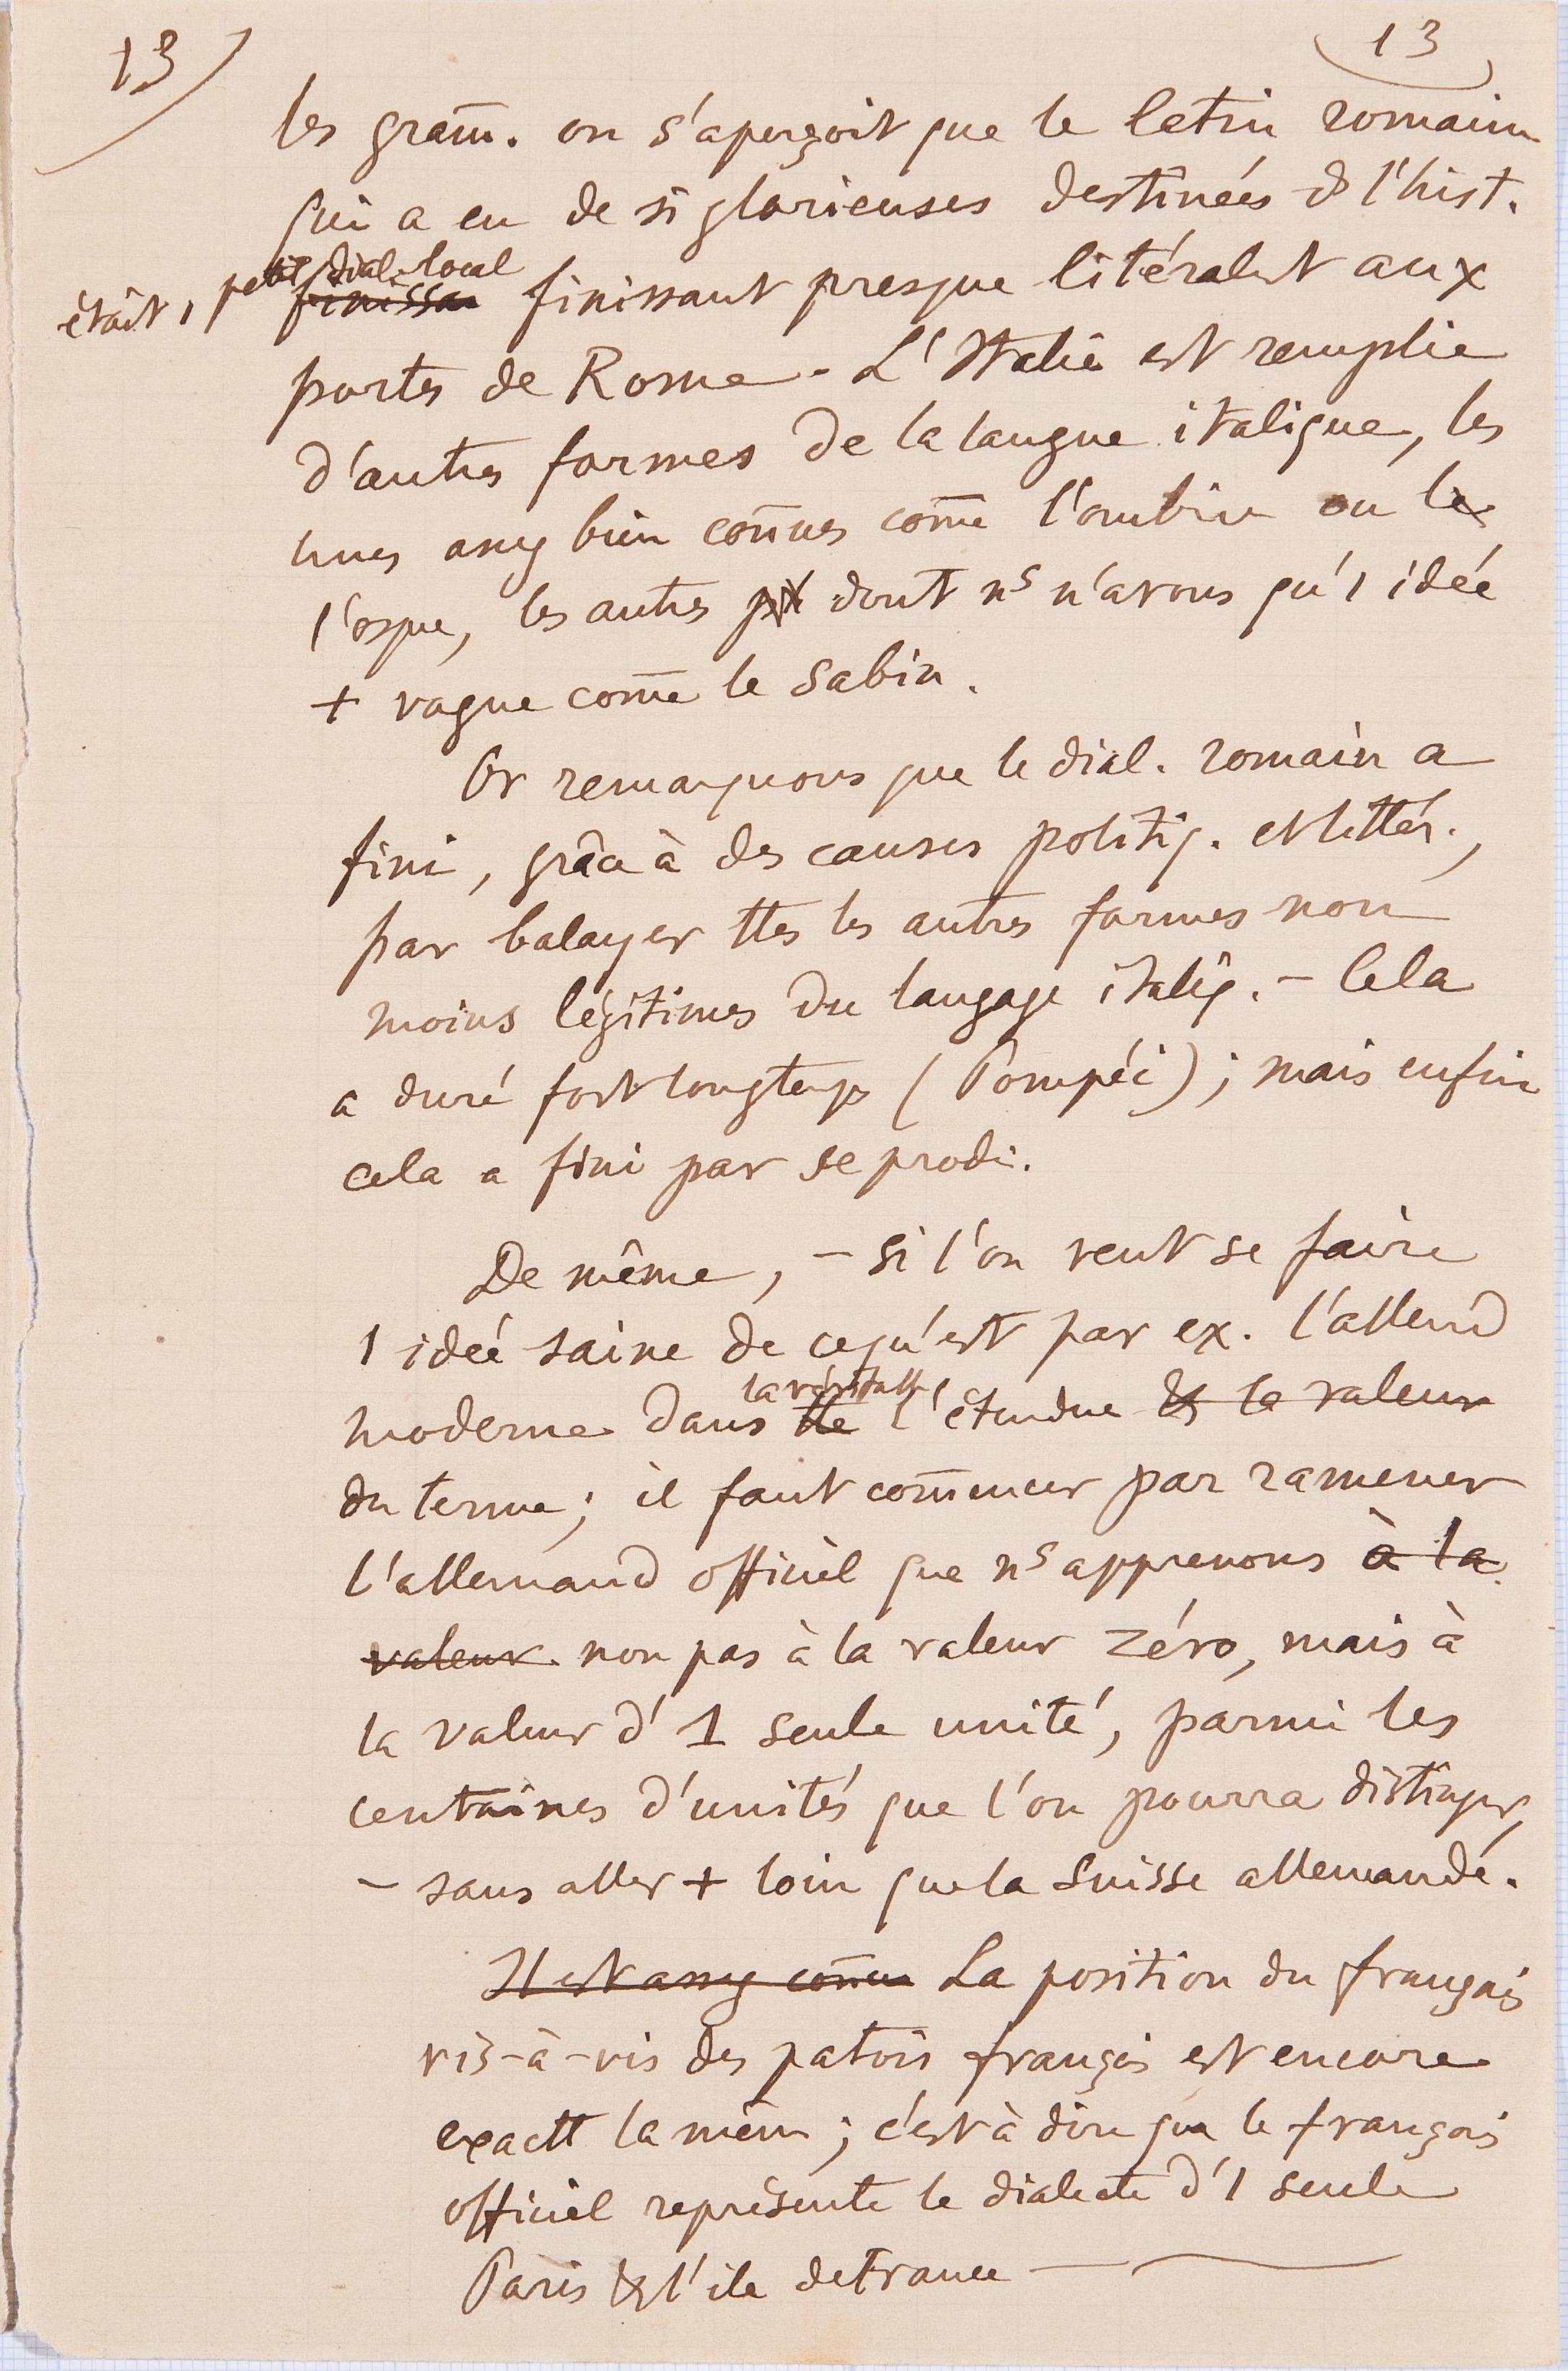 13
13
les gram̄. on s'aperçoit que le latin romain
qui a eu de si glorieuses destinées ds l'hist.
était 1 petit dial. local
finissa finissant presque litéralent aux
portes de Rome. L'Italie est remplie
d'autres formes de la langue italique, les
unes assez bien coñues com̄e l'ombrien ou le
l'osque, les autres dont nˢ n'avons qu'1 idée
+ vague com̄e le Sabin.
Or remarquons que le dial. romain a
fini, grâce à des causes politiq. et littér.,
par balayer ttes les autres formes non
moins légitimes du langage italiq. – Cela
a duré fort longtemps (Pompéi); mais enfin
cela a fini par se prodi.
De même, – si l'on veut se faire
1 idée saine de ce qu'est par ex. l'allemd
la véritable
moderne dans tte l'étendue & la valeur
du terme; il faut com̄encer par ramener
l'allemand officiel que nˢ apprenons à la
valeur non pas à la valeur zéro, mais à
la valeur d'1 seule unité, parmi les
centaines d'unités que l'on pourra distinguer,
– sans aller + loin que la Suisse allemande.
Il est assez coñu La position du français
vis-à-vis des patois français est encore
exactt la même; c'est à dire que le français
officiel représente le dialecte d'1 seule
Paris & l'ile de France —